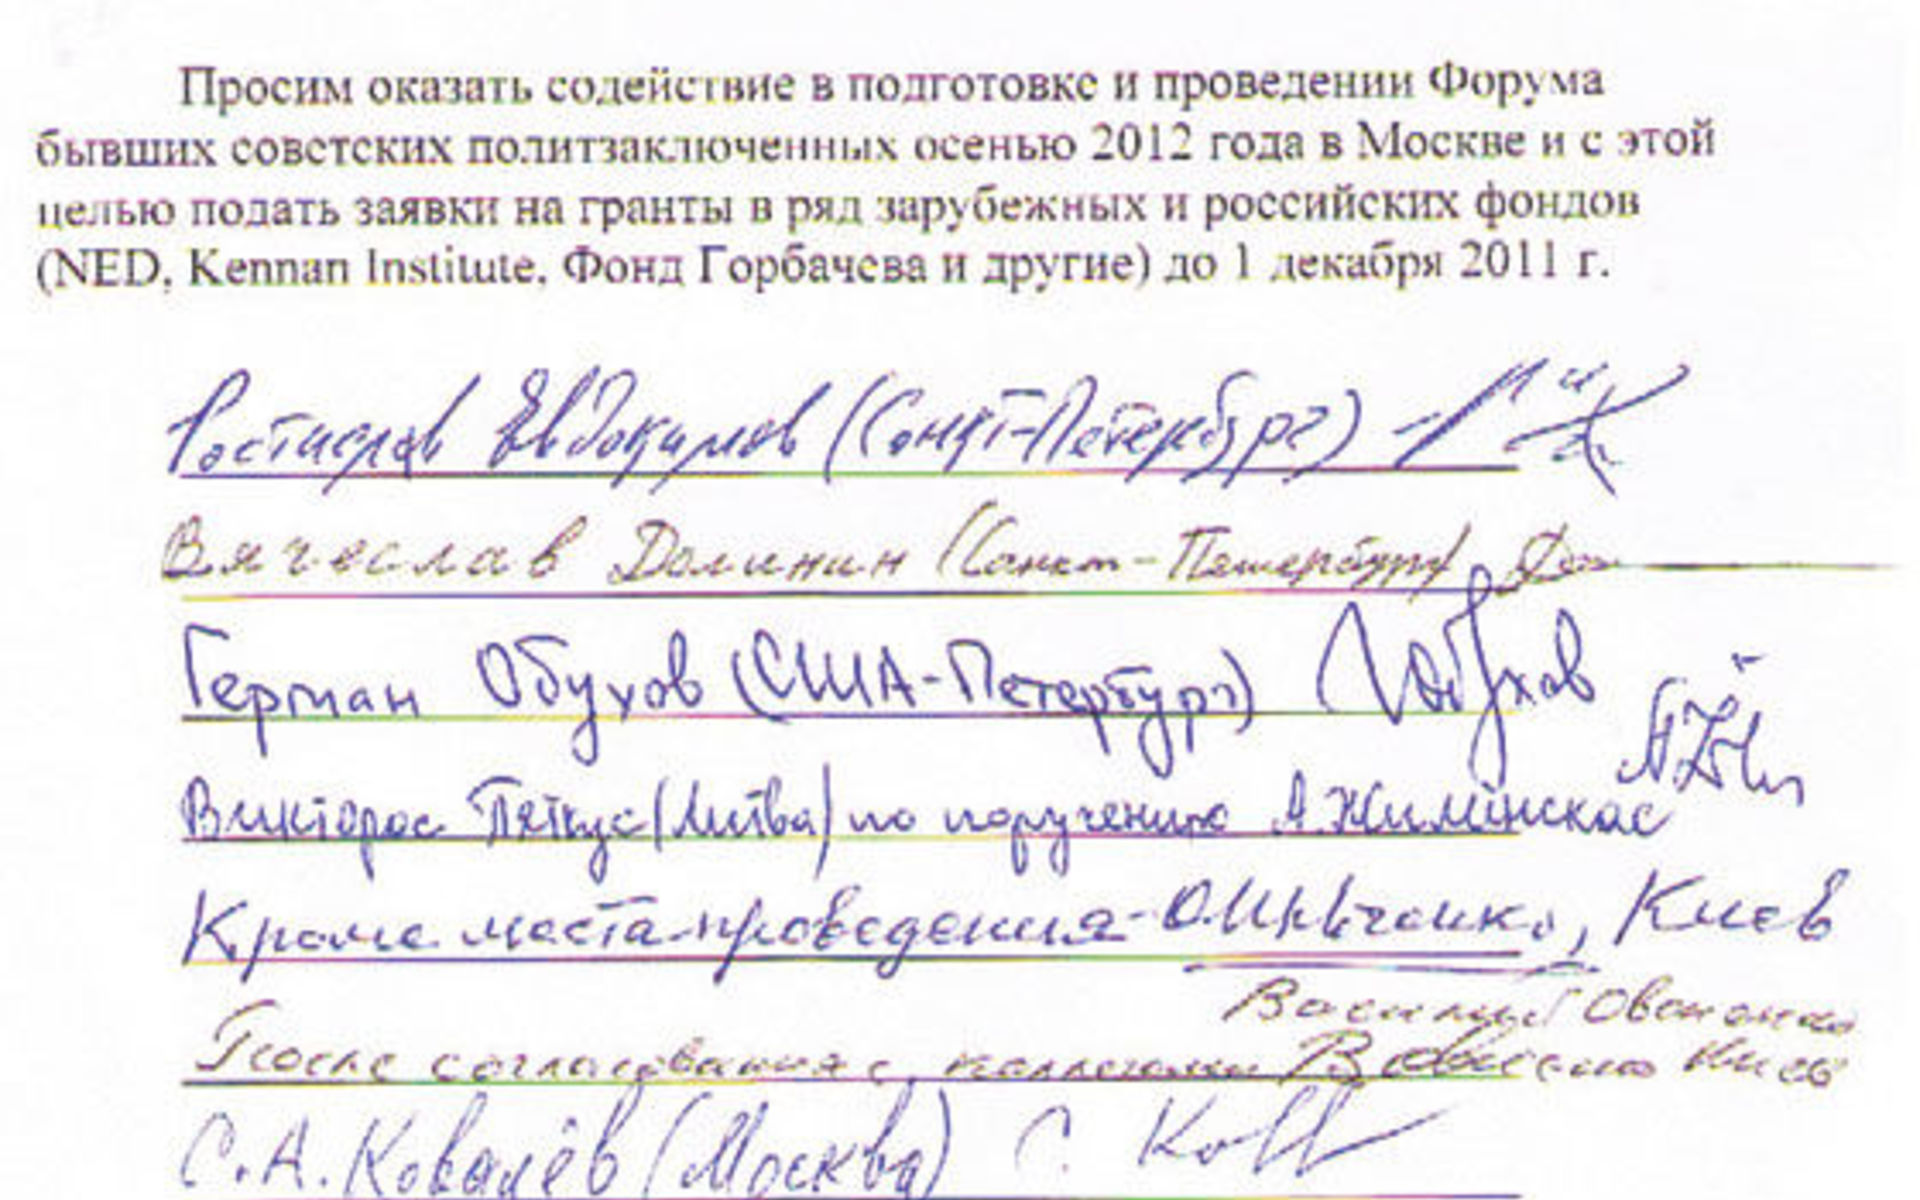 Просим оказать содействие в подготовке и проведении Форума
бывших советских политзаключенных осенью 2012 года в Москве и с этой
целью подать заявки на гранты в ряд зарубежных и российских фондов
(NED, Kennan Institute, Фонд Горбачева и другие) до 1 декабря 2011 г.
Ростислав Евдокимов (Санкт-Петербург) -
Вячеслав Долинин (Санкт-Петербург)
Герман Обухов (США-Петербург) Обухов
Викторас Пяткус (Литва) по поручению А. Жилинскас
Кроме места проведения - О. Киев
Василий Овсиенко
После согласования с коллегами Киев
С.А. Ковалёв (Москва) С.